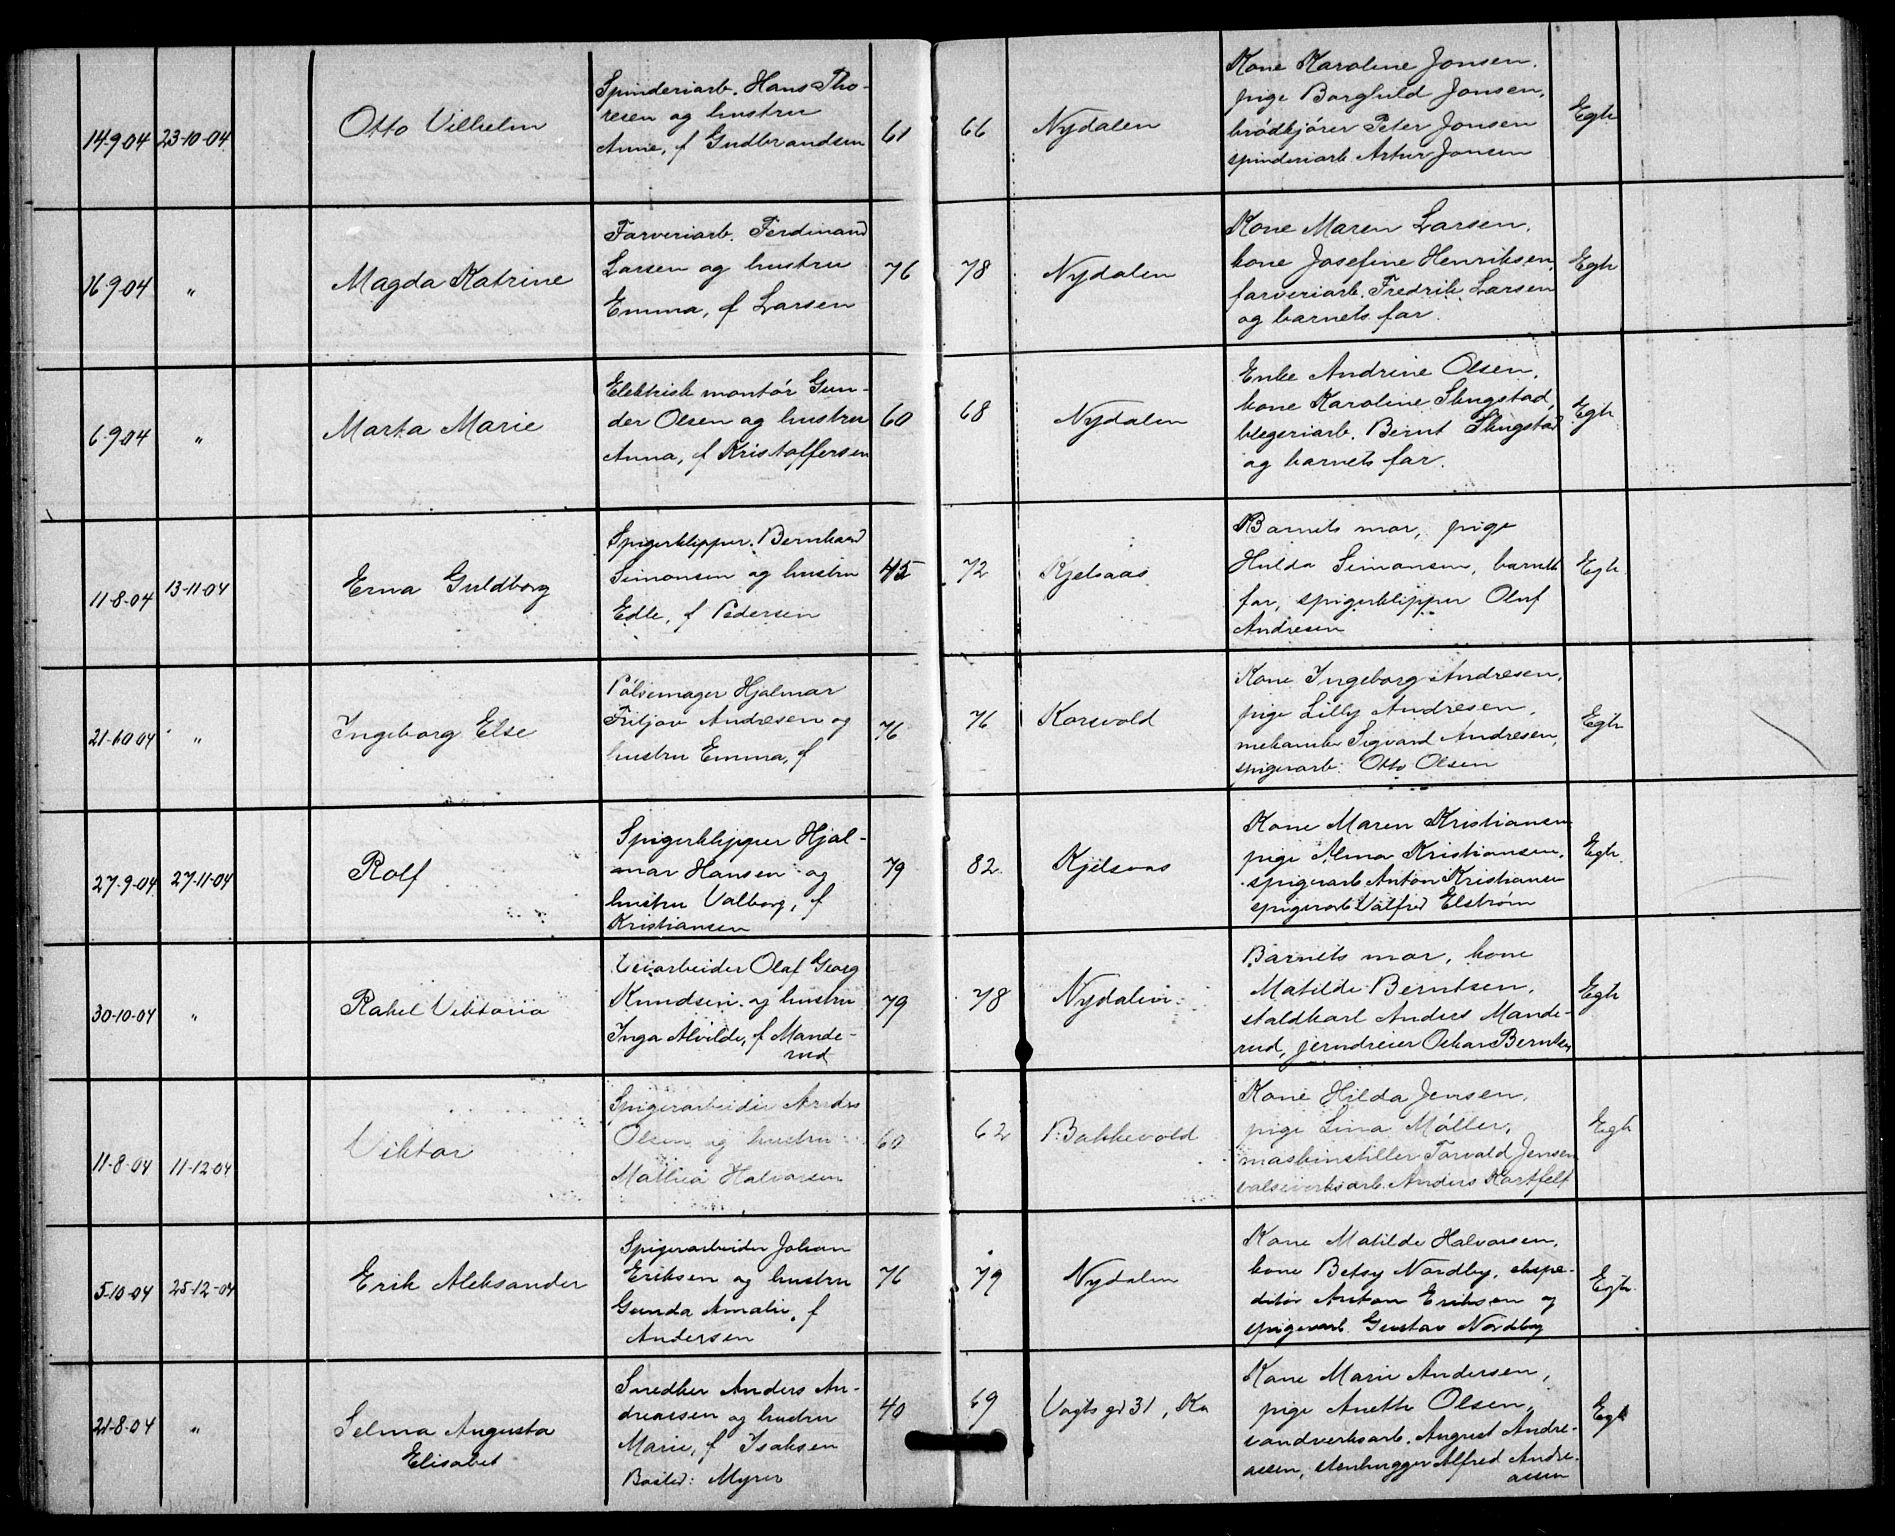 14-9-04 23-10-04 Otto Vilhelm
Spinderiarb. Hans Tho-
resen og hustru
Anne, f Gudbrandsen
61 66 Nydalen
Kone Karoline Jonsen,
pige Borghild Jonsen,
brødkjører Peter Jonsen
spinderiarb. Artur Jonsen
Egh
16-9-04 " Magda Katrine
Farveriarb. Ferdinand
Larsen og hustru
Emma, f Larsen
76 78 Nydalen
Kone Maren Larsen,
kone Josefine Henriksen,
farveriarb. Fredrik Larsen
og barnets far.
Egh
6-9-04 " Marta Marie
Elektrisk montør Gun-
der Olsen og hustru
Anna, f Kristoffersen
60 68 Nydalen
Enke Andrine Olsen,
kone Karoline Slingstad,
blegeriarb. Bernt Slingstad
og barnets far.
Egh
11-8-04 13-11-04 Erna Guldborg
Spigerklipper Bernhard
Simonsen og hustru
Edle, f Pedersen
45 72 Kjelsaas
Barnets mor, pige
Hulda Simonsen, barnets
far, spigerklipper Oluf
Andresen
Egh
21-10-04 " Ingeborg Else
Pølsemager Hjalmar
Fritjov Andresen og
hustru Emma, f
76 76 Korsvold
Kone Ingeborg Andresen,
pige Lilly Andresen,
mekaniker Sigvard Andresen,
spigerarb. Otto Olsen
Egh
27-9-04 27-11-04 Rolf
Spigerklipper Hjal-
mar Hansen og
hustru Valborg, f
Kristiansen
79 82 Kjelsaas
Kone Maren Kristiansen
pige Alma Kristiansen,
spigerarb Anton Kristiansen
spigerarb Valfred Elstrøm
Egh
30-10-04 " Rakel Viktoria
Veiarbeider Olaf Georg
Knudsen og hustru
Inga Alvilde, f Mande-
rud
79 78 Nydalen
Barnets mor, kone
Matilde Berntsen,
staldkarl Anders Mande-
rud, jerndreier Oskar Berntsen
Egh
11-8-04 11-12-04 Viktor
Spigerarbeider Anders
Olsen og hustru
Mathea Halvorsen
60 62 Bakkevold
Kone Hilda Jensen,
pige Lina Møller,
maskinstiller Torvald Jensen
valseverksarb. Anders Kortfelt
Egh
5-10-04 25-12-04 Erik Aleksander
Spigerarbeider Johan
Eriksen og hustru
Gunda Amalie, f
Andersen
76 79 Nydalen
Kone Matilde Halvorsen,
kone Betsy Nordby, ekspe-
ditør Anton Erikson og
spigerarb. Gustav Nordby
Egh
21-8-04 " Selma Augusta
Elisabet
Snedker Anders An-
dreassen og hustru
Marie, f Isaksen
Bosted: Myrer
40 69 Vogts gd 31, Ka
Kone Marie Andersen,
pige Aneth Olsen,
vandverksarb. August Andre-
asen, stenhugger Alfred Andre-
assen
Egh